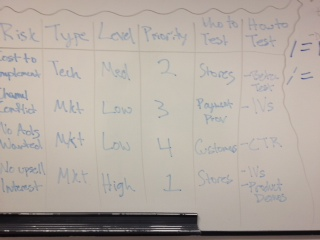 Risk Type Level Priority Who to Test How to Test
Cost to Implement Tech Med 2 Stores - Beta Test
Channel Conflict Mkt Low 3 Payment Prov - IVs
No Ads Wanted Mkt Low 4 Customers - CTR
No upsell Interest Mkt High 1 Stores - IVs
- Product Demos
1 =